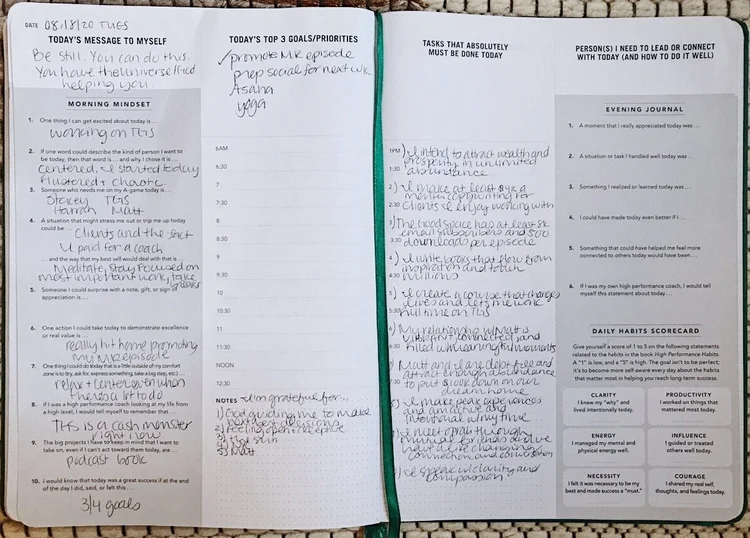 DATE 08/18/20 TUES
TODAY'S MESSAGE TO MYSELF
Be still. You can do this.
You have the universe
helping you.
MORNING MINDSET
1. One thing I can get excited about today is ...
working on TGS
2. If one word could describe the kind of person I want to
be today, then that word is ... and why I chose it is ...
centered. I started today
flustered + chaotic
3. Someone who needs me on my A game today is ...
Stacey TGS
Hannah Matt
4. A situation that might stress me out or trip me up today
could be ...
Clients and the fact
I paid for a coach
... and the way my best self would deal with that is ...
Meditate, stay focused on
most important work, take
breaks
5. Someone I could surprise with a note, gift, or sign of
appreciation is ...
6. One action I could take today to demonstrate excellence
or real value is ...
really hit home promoting
my MR episode
7. One thing I could do today that is a little outside of my comfort
zone is (to try, ask for, express something, take a big step, etc.) ...
relax + center even when
there's a lot to do
8. If I was a high performance coach looking at my life from
a high level, I would tell myself to remember that ...
THIS is a cash monster
right now
9. The big projects I have to keep in mind that I want to
take on, even if I can't act toward them today, are ...
podcast book
10. I would know that today was a great success if at the end
of the day I did, said, or felt this ...
3/4 goals
TODAY'S TOP 3 GOALS/PRIORITIES
✓ promote MR episode
prep social for next wk
Asana
yoga
6AM
6:30
7
7:30
8
8:30
9
9:30
10
10:30
11
11:30
NOON
12:30
NOTES I'm grateful for...
1) God guiding me to make
next best decisions
2) feeling open + receptive
3) the sun
5) Matt
TASKS THAT ABSOLUTELY
MUST BE DONE TODAY
1PM 1) I intend to attract wealth and
prosperity in unlimited
1:30 abundance
2) I make at least
copywriting for
clients I enjoy working with
3) The good space has at least 8k
email subscribers and 500
3:30 downloads per episode
4) I write books that flow from
inspiration and touch
4:30 millions
5) I create a course that changes
lives and lets me work
5:30 full time on TGS
6) My relationship w/ Matt is
vibrant, connected, and
filled w/ meaningful moments
7) Matt and I are debt free and
attract enough abundance
to put down on our
dream home
8) I make peak experiences
and am active and
intentional w/ my time
9) I meet Oprah through
mutual friends and we
have a life changing
connection and conversation
I speak w/ clarity and
compassion
PERSON(S) I NEED TO LEAD OR CONNECT
WITH TODAY (AND HOW TO DO IT WELL)
EVENING JOURNAL
1. A moment that I really appreciated today was ...
2. A situation or task I handled well today was ...
3. Something I realized or learned today was ...
4. I could have made today even better if I ...
5. Something that could have helped me feel more
connected to others today would have been ...
6. If I was my own high performance coach, I would tell
myself this statement about today ...
DAILY HABITS SCORECARD
Give yourself a score of 1 to 5 on the following statements
related to the habits in the book High Performance Habits.
A "1" is low, and a "5" is high. The goal isn't to be perfect;
it's to become more self-aware every day about the habits
that matter most in helping you reach long-term success.
CLARITY
I know my "why" and
lived intentionally today.
PRODUCTIVITY
I worked on things that
mattered most today.
ENERGY
I managed my mental and
physical energy well.
INFLUENCE
I guided or treated
others well today.
NECESSITY
I felt it was necessary to be my
best and made success a "must."
COURAGE
I shared my real self,
thoughts, and feelings today.